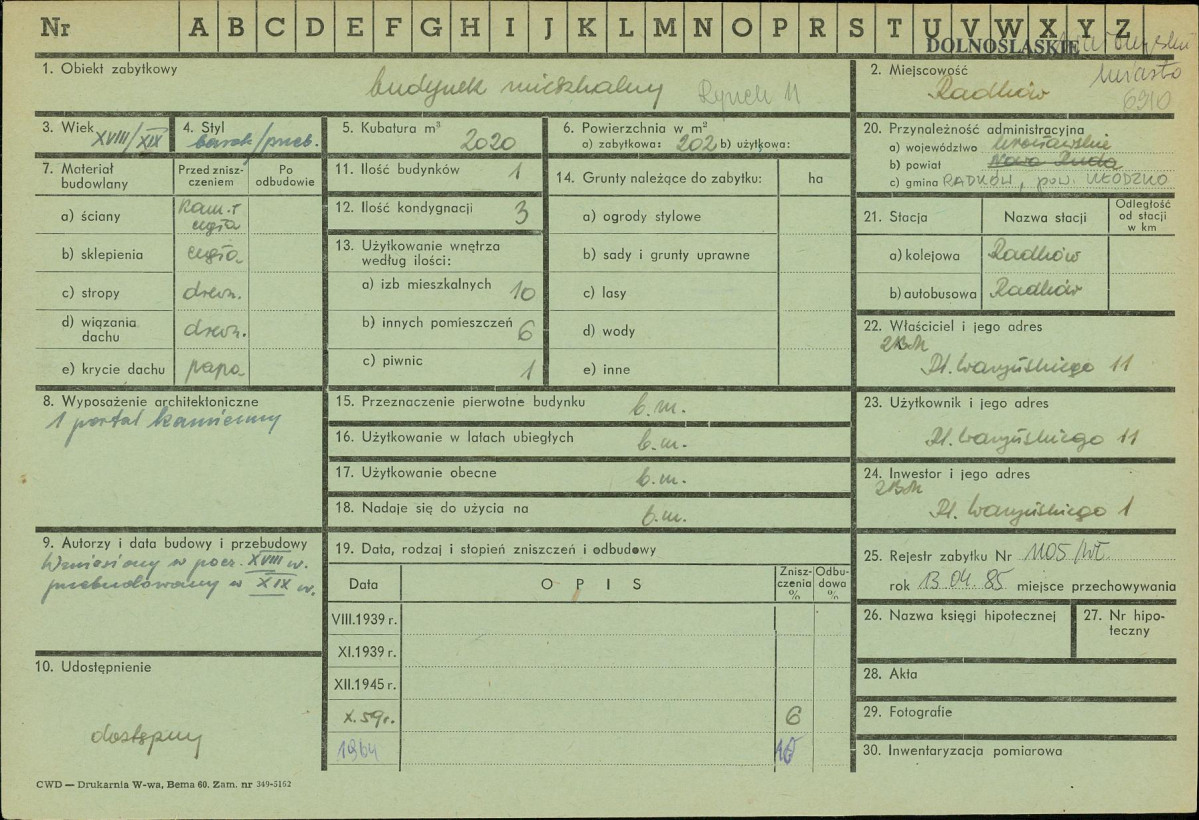 Nr A B C D E F G H I J K L M N O P R S T U V W X Y Z
DOLNOŚLĄSKIE
miasto
6910
1. Obiekt zabytkowy
budynek mieszkalny Rynek 11
2. Miejscowość
Radków
3. Wiek XVIII/XIX
4. Styl barok/przeb.
5. Kubatura m³ 2020
6. Powierzchnia w m²
a) zabytkowa: 202 b) użytkowa:
20. Przynależność administracyjna
a) województwo Wrocławskie
b) powiat Nowa Ruda
c) gmina RADKÓW, pow. KŁODZKO
7. Materiał budowlany
Przed znisz-
czeniem
Po
odbudowie
a) ściany Kam. +
cegła
b) sklepienia cegła
c) stropy drewn.
d) wiązania
dachu drewn.
e) krycie dachu papa
11. Ilość budynków 1
12. Ilość kondygnacji 3
13. Użytkowanie wnętrza
według ilości:
a) izb mieszkalnych 10
b) innych pomieszczeń 6
c) piwnic 1
14. Grunty należące do zabytku: ha
a) ogrody stylowe
b) sady i grunty uprawne
c) lasy
d) wody
e) inne
21. Stacja Nazwa stacji
Odległość
od stacji
w km
a) kolejowa Radków
b) autobusowa Radków
22. Właściciel i jego adres
ZBM
Pl. Waryńskiego 11
8. Wyposażenie architektoniczne
1 portal kamienny
15. Przeznaczenie pierwotne budynku b.m.
16. Użytkowanie w latach ubiegłych b.m.
17. Użytkowanie obecne b.m.
18. Nadaje się do użycia na b.m.
23. Użytkownik i jego adres
Pl. Waryńskiego 11
24. Inwestor i jego adres
ZBM
Pl. Waryńskiego 1
9. Autorzy i data budowy i przebudowy
Wzniesiony w pocz. XVIII w.
przebudowany w XIX w.
19. Data, rodzaj i stopień zniszczeń i odbudowy
Data OPIS
Znisz-
czenia
%
Odbu-
dowa
%
VIII.1939 r.
XI.1939 r.
XII.1945 r.
X.59r. 6
1964 10
25. Rejestr zabytku Nr 1105/WŁ
rok 13.04.85 miejsce przechowywania
26. Nazwa księgi hipotecznej
27. Nr hipo-
teczny
28. Akta
29. Fotografie
30. Inwentaryzacja pomiarowa
10. Udostępnienie
dostępny
CWD — Drukarnia W-wa, Bema 60. Zam. nr 349-5162